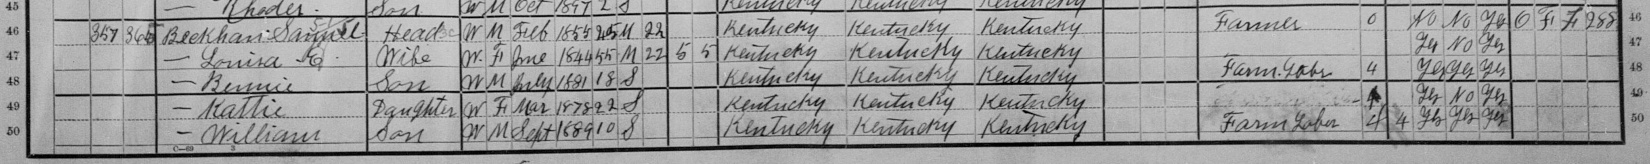 45 — Rhodes. Son W M Oct 1897 2 S Kentucky Kentucky Kentucky
46 357 365 Beckham Samuel Head W M Feb 1855 45 M 22 Kentucky Kentucky Kentucky Farmer 0 No No Yes O F F 288 46
47 — Louisa Wife W. F June 1844 55 M 22 5 5 Kentucky Kentucky Kentucky Yes No Yes 47
48 — Bennie Son W M July 1881 18 S Kentucky Kentucky Kentucky Farm Labr 4 Yes Yes Yes 48
49 — Kattie Daughter W F Mar 1878 22 S Kentucky Kentucky Kentucky Yes No Yes 49
50 — William Son W M Sept 1889 10 S Kentucky Kentucky Kentucky Farm Labor 4 4 Yes Yes Yes 50